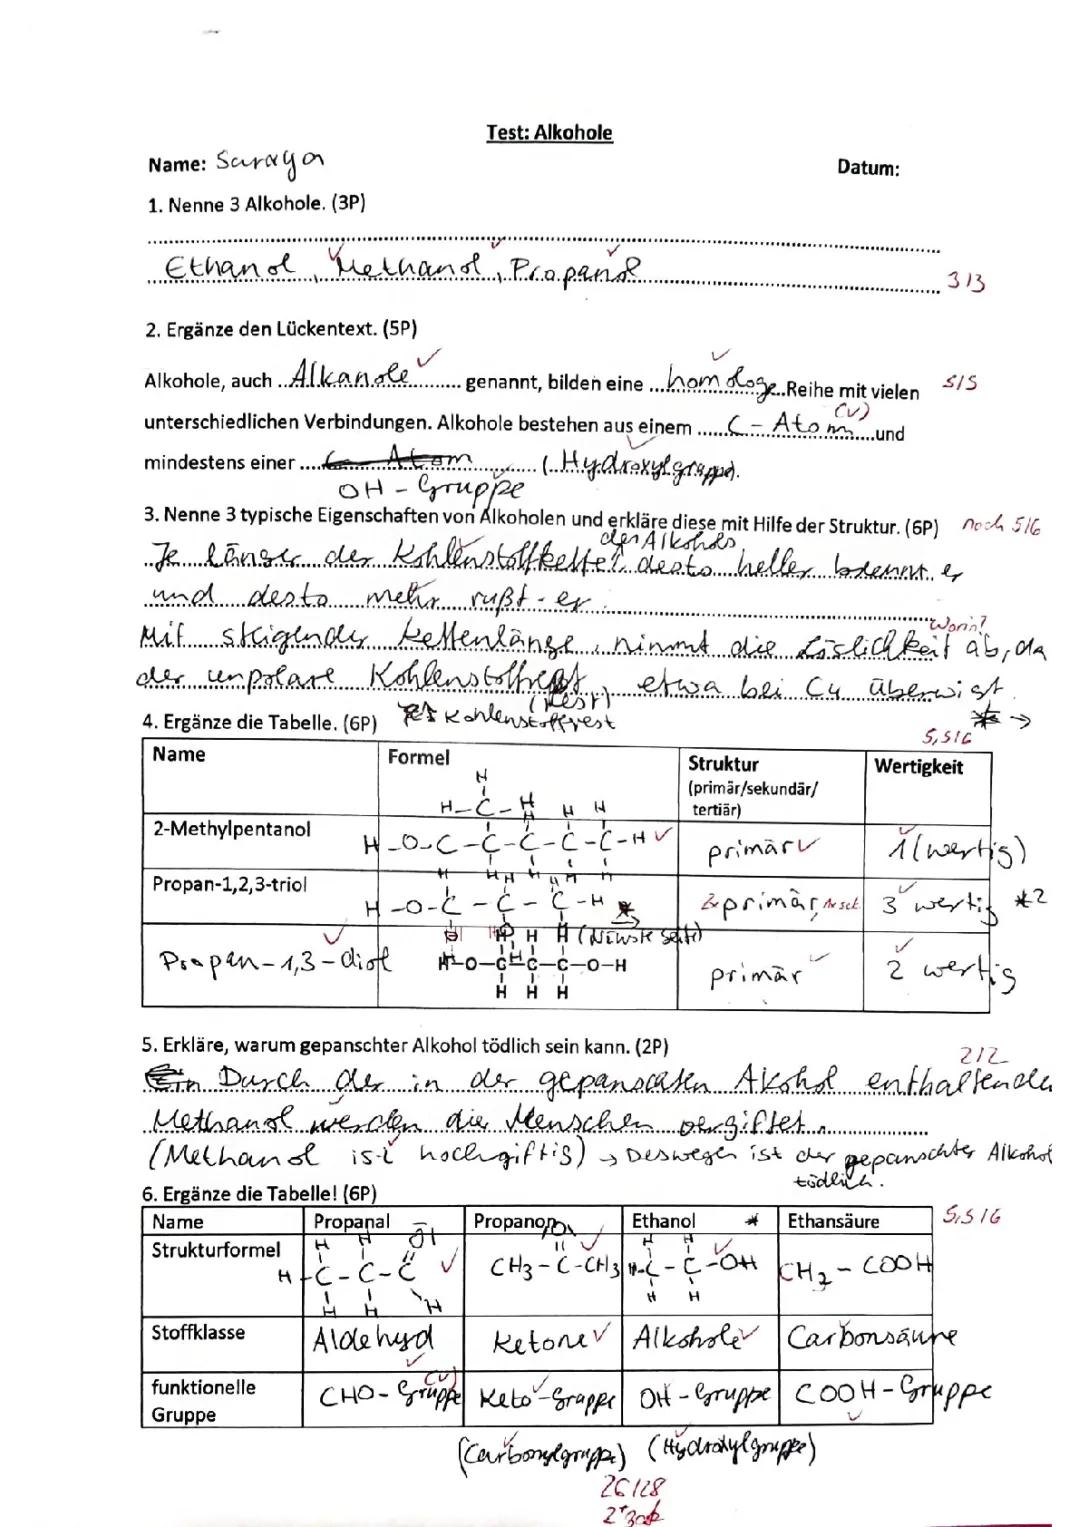 Test: Alkohole
Name: Suraya
Datum:
1. Nenne 3 Alkohole. (3P)
Ethanol, Methanol, Propanol
3/3
2. Ergänze den Lückentext. (5P)
Alkohole, auch Alkanole genannt, bilden eine homologe Reihe mit vielen
5/5
unterschiedlichen Verbindungen. Alkohole bestehen aus einem C-Atom und
mindestens einer C-Atom (Hydroxylgruppe).
OH-Gruppe
3. Nenne 3 typische Eigenschaften von Alkoholen und erkläre diese mit Hilfe der Struktur. (6P)
noch 5/6
des Alkohols
Je länger der Kohlenstoffkette, desto heller brennt er
und desto mehr rußt er.
Worin?
Mit steigender Kettenlänge, nimmt die Löslichkeit ab, da
der unpolare Kohlenstoffrest, etwa bei C4 überwiegt.
(Rest)
Kohlenstoffrest
4. Ergänze die Tabelle. (6P)
5,5/6
Name Formel Struktur (primär/sekundär/ tertiär) Wertigkeit
H
H-C-H H H
2-Methylpentanol H-O-C-C-C-C-C-H primär 1(wertig)
Propan-1,2,3-triol H-O-C-C-C-H 2x primär, 1x sek 3 wertig *2
Propan-1,3-diol H-O-C-C-C-O-H primär 2 wertig
H H H
5. Erkläre, warum gepanschter Alkohol tödlich sein kann. (2P)
2/2
Durch der in der gepanschten Alkohol enthaltende
Methanol werden die Menschen vergiftet.
(Methanol ist hochgiftig) → Deswegen ist der gepanschter Alkohol
tödlich.
6. Ergänze die Tabelle! (6P)
5,5/6
Name Propanal Propanon Ethanol * Ethansäure
Strukturformel H-C-C-C H CH3-C-CH3 H-C-C-OH CH2-COOH
Stoffklasse Aldehyd Ketone Alkohole Carbonsäure
funktionelle Gruppe CHO-Gruppe Keto-Gruppe OH-Gruppe COOH-Gruppe
(Carbonylgruppe) (Hydroxylgruppe)
26/28